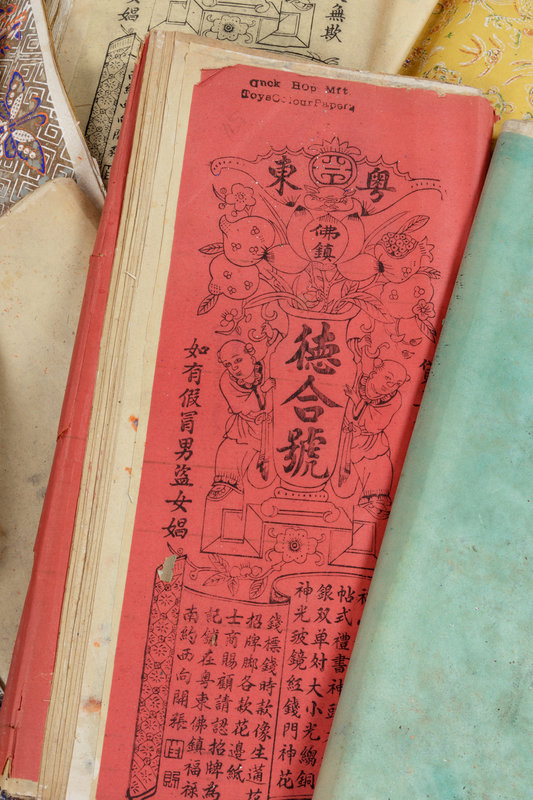 Duck Hop Mft
ToysColourPapers
無欺
女娼
粤東
佛鎮
德合號
如有假冒男盜女娼
帖式禮書神
銀双單对大小光縐銅
神光玻鏡紅錢門神花
錢標錢時款像生
招牌郷各款花邊紙
士商賜顧請認招牌爲
記鋪在粤東佛鎮福禄
南約西向開張